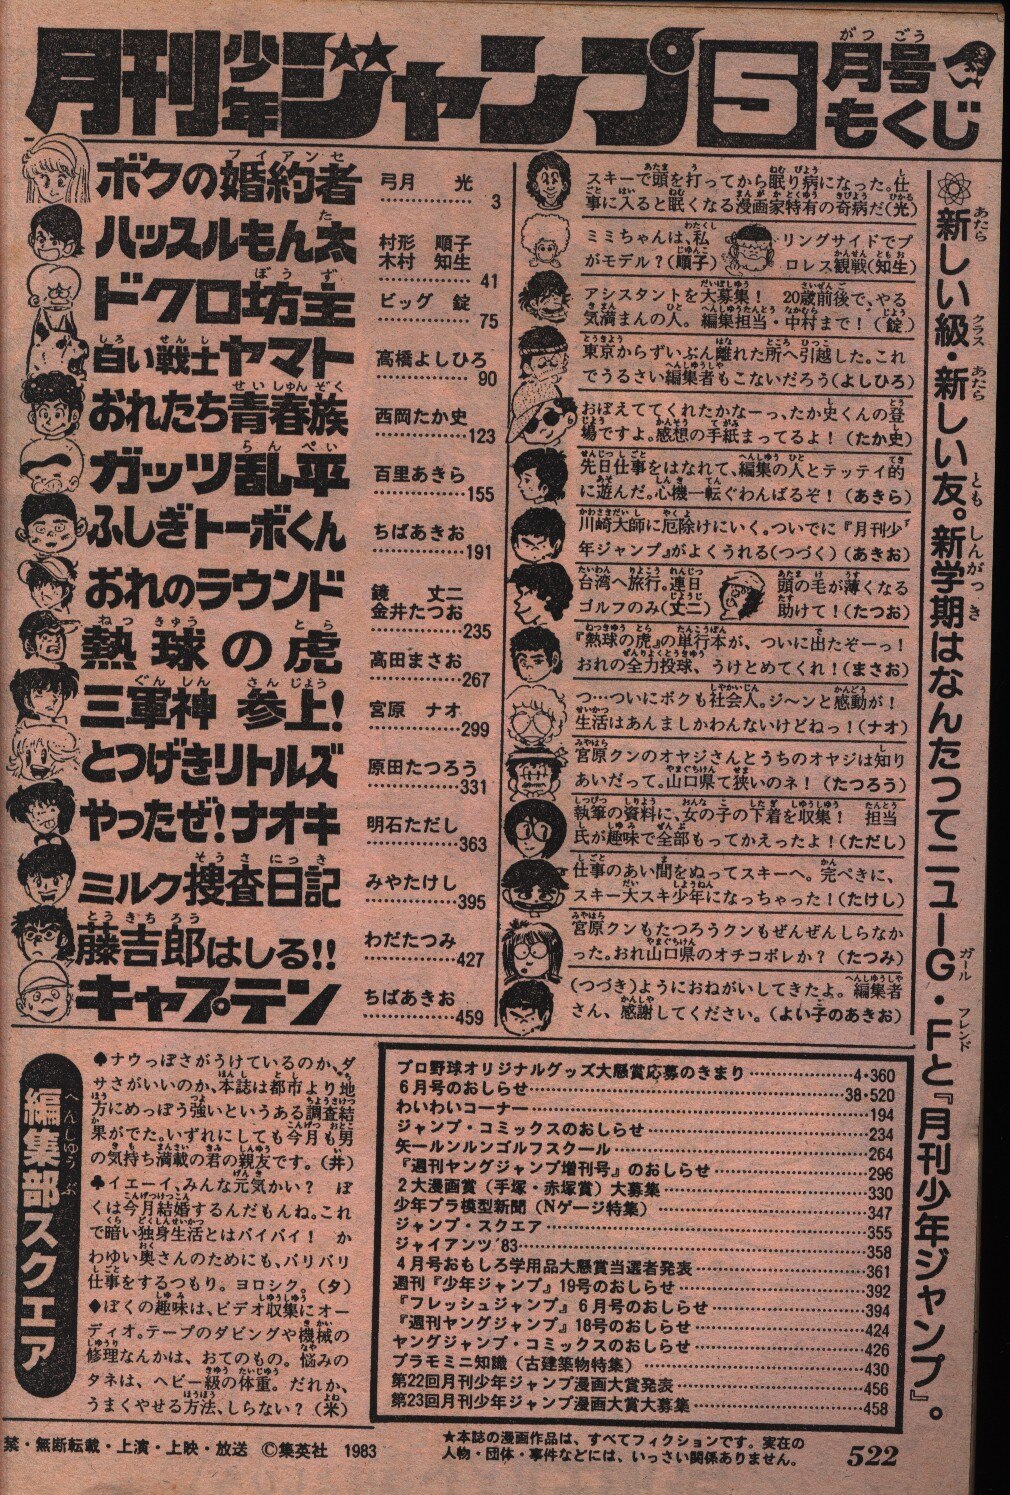 月刊少年ジャンプ5月号もくじ
ボクの婚約者 弓月 光 3
ハッスルもん太 村形 順子 木村 知生 41
ドクロ坊主 ビッグ 錠 75
白い戦士ヤマト 高橋よしひろ 90
おれたち青春族 西岡たか史 123
ガッツ乱平 百里あきら 155
ふしぎトーボくん ちばあきお 191
おれのラウンド 鏡 丈二 金井たつお 235
熱球の虎 高田まさお 267
三軍神 参上! 宮原 ナオ 299
とつげきリトルズ 原田たつろう 331
やったぜ!ナオキ 明石ただし 363
ミルク捜査日記 みやたけし 395
藤吉郎はしる!! わだたつみ 427
キャプテン ちばあきお 459
スキーで頭を打ってから眠り病になった。仕
事に入ると眠くなる漫画家特有の奇病だ(光)
ミミちゃんは、私
がモデル?(順子)
リングサイドでプ
ロレス観戦(知生)
アシスタントを大募集! 20歳前後で、やる
気満まんの人。編集担当・中村まで!(錠)
東京からずいぶん離れた所へ引越した。これ
でうるさい編集者もこないだろう(よしひろ)
おぼえててくれたかなーっ、たか史くんの登
場ですよ。感想の手紙まってるよ!(たか史)
先日仕事をはなれて、編集の人とテッテイ的
に遊んだ。心機一転ぐわんばるぞ!(あきら)
川崎大師に厄除けにいく。ついでに『月刊少
年ジャンプ』がよくうれる(つづく)(あきお)
台湾へ旅行。連日
ゴルフのみ(丈二)
頭の毛が薄くなる
助けて!(たつお)
『熱球の虎』の単行本が、ついに出たぞーっ!
おれの全力投球、うけとめてくれ!(まさお)
つ…ついにボクも社会人。ジ〜ンと感動が!
生活はあんましかわんないけどねっ!(ナオ)
宮原クンのオヤジさんとうちのオヤジは知り
あいだって。山口県て狭いのネ!(たつろう)
執筆の資料に、女の子の下着を収集! 担当
氏が趣味で全部もってかえったよ!(ただし)
仕事のあい間をぬってスキーへ。完ぺきに、
スキー大スキ少年になっちゃった!(たけし)
宮原クンもたつろうクンもぜんぜんしらなか
った。おれ山口県のオチコボレか?(たつみ)
(つづき)ようにおねがいしてきたよ。編集者
さん、感謝してください。(よい子のあきお)
新しい級・新しい友。新学期はなんたってニューG・Fと『月刊少年ジャンプ』。
編集部スクエア
♠ナウっぽさがうけているのか、ダ
サさがいいのか、本誌は都市より地
方にめっぽう強いというある調査結
果がでた。いずれにしても今月も男
の気持ち満載の君の親友です。(井)
♣イエーイ、みんな元気かい? ぼ
くは今月結婚するんだもんね。これ
で暗い独身生活とはバイバイ! か
わゆい奥さんのためにも、バリバリ
仕事をするつもり。ヨロシク。(タ)
♦ぼくの趣味は、ビデオ収集にオー
ディオ。テープのダビングや機械の
修理なんかは、おてのもの。悩みの
タネは、ヘビー級の体重。だれか、
うまくやせる方法、しらない?(米)
プロ野球オリジナルグッズ大懸賞応募のきまり 4・360
6月号のおしらせ 38・520
わいわいコーナー 194
ジャンプ・コミックスのおしらせ 234
矢ールンルンゴルフスクール 264
『週刊ヤングジャンプ増刊号』のおしらせ 296
2大漫画賞(手塚・赤塚賞)大募集 330
少年プラ模型新聞(Nゲージ特集) 347
ジャンプ・スクエア 355
ジャイアンツ'83 358
4月号おもしろ学用品大懸賞当選者発表 361
週刊『少年ジャンプ』19号のおしらせ 392
『フレッシュジャンプ』6月号のおしらせ 394
『週刊ヤングジャンプ』18号のおしらせ 424
ヤングジャンプ・コミックスのおしらせ 426
プラモミニ知識(古建築物特集) 430
第22回月刊少年ジャンプ漫画大賞発表 456
第23回月刊少年ジャンプ漫画大賞大募集 458
禁・無断転載・上演・上映・放送 ©集英社 1983
★本誌の漫画作品は、すべてフィクションです。実在の
人物・団体・事件などには、いっさい関係ありません。
522